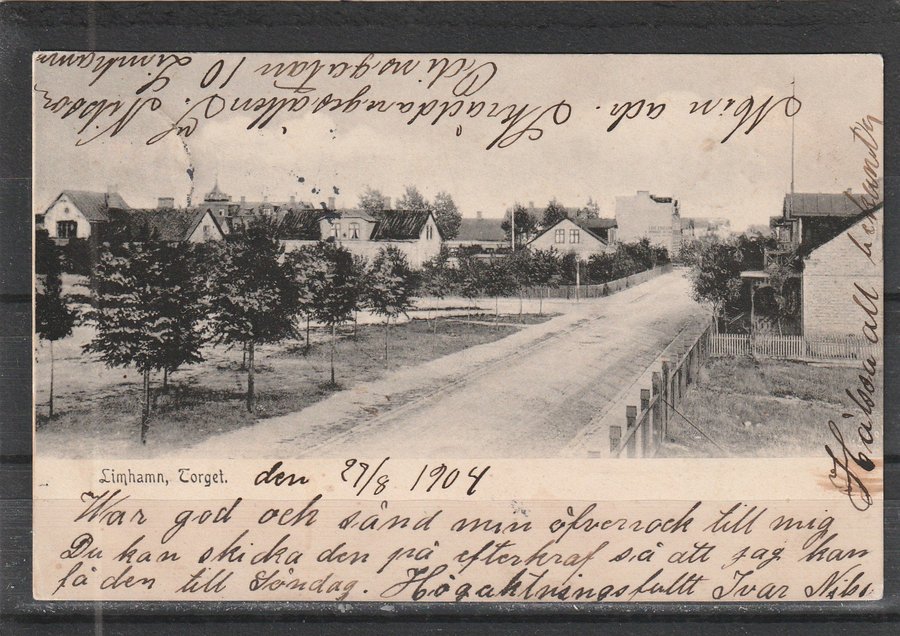 Min adr. Skräddaregesällen J. Nilsson
Odinsgatan 10 Limhamn
Hälsa alla bekanta
Limhamn, Torget.
den 27/8 1904
War god och sänd min öfverrock till mig
Du kan skicka den på efterkraf så att jag kan
få den till Söndag. Högaktningsfullt Ivar Nils